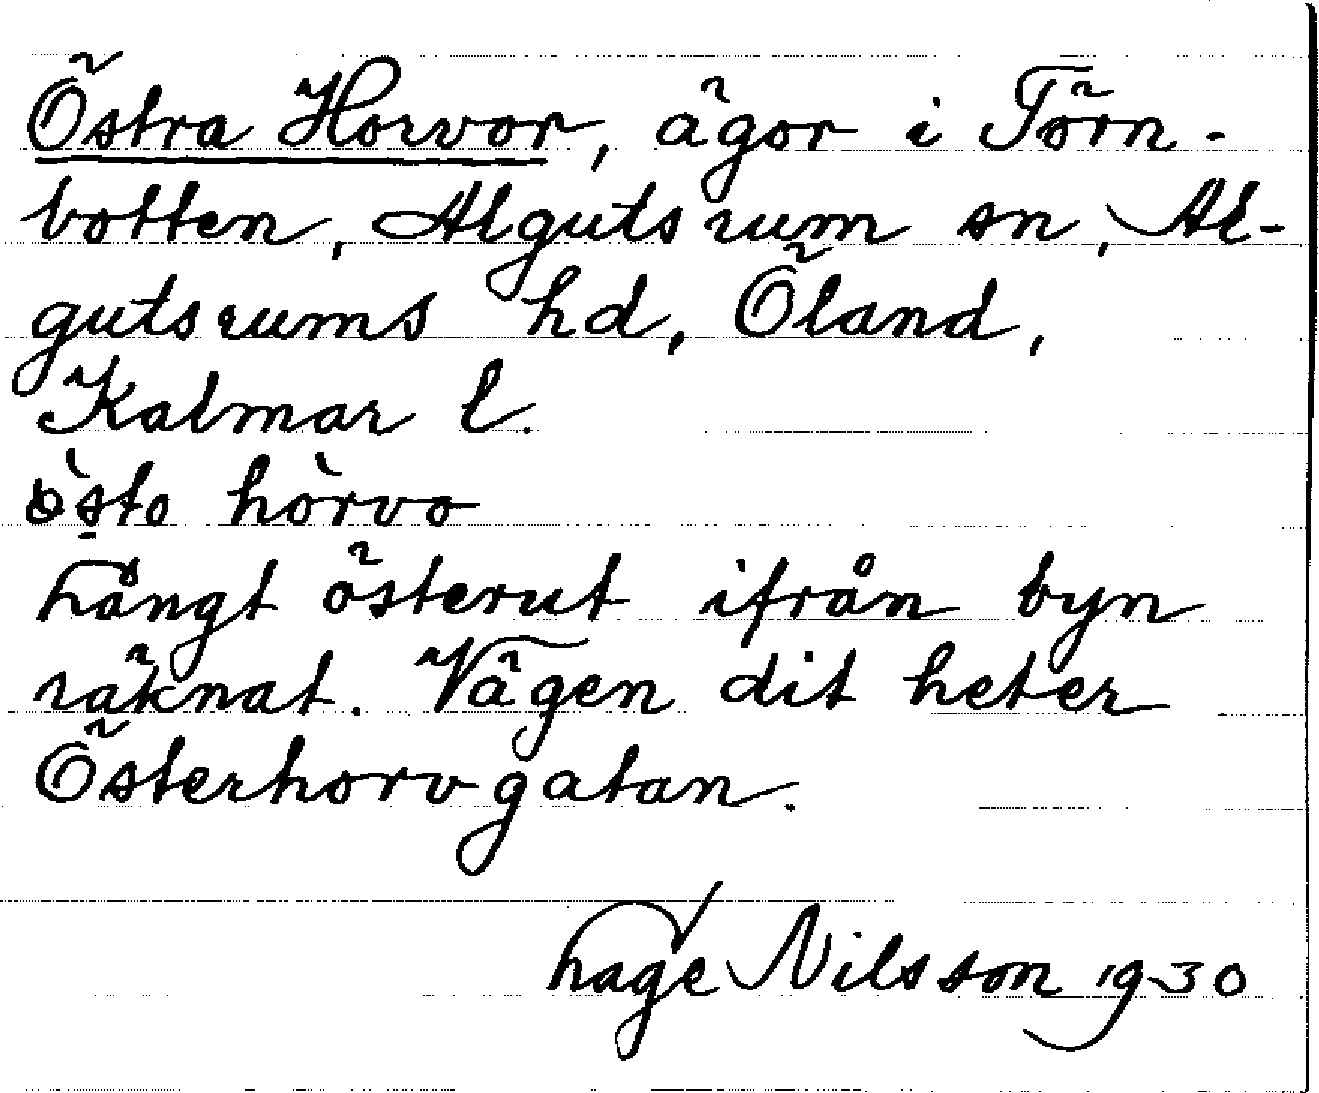 Östra Horvor, ägor i Törn-
botten, Algutsrum sn, Al-
gutsrums hd, Öland,
Kalmar l.
ò̀sto hòrvo
Långt österut ifrån byn
räknat. Vägen dit heter
Österhorvgatan.
Hage Nilsson 1930